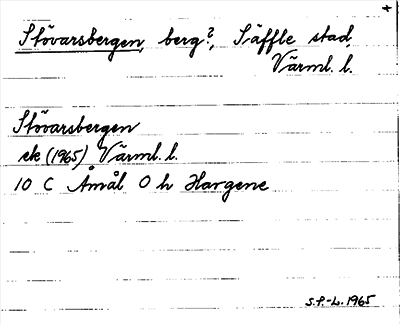 +
Stövarsbergen, berg?, Säffle stad,
Värml. l.
Stövarsbergen
ek (1965) Värml. l.
10 C Åmål O h Hargene
S.P.-L. 1965